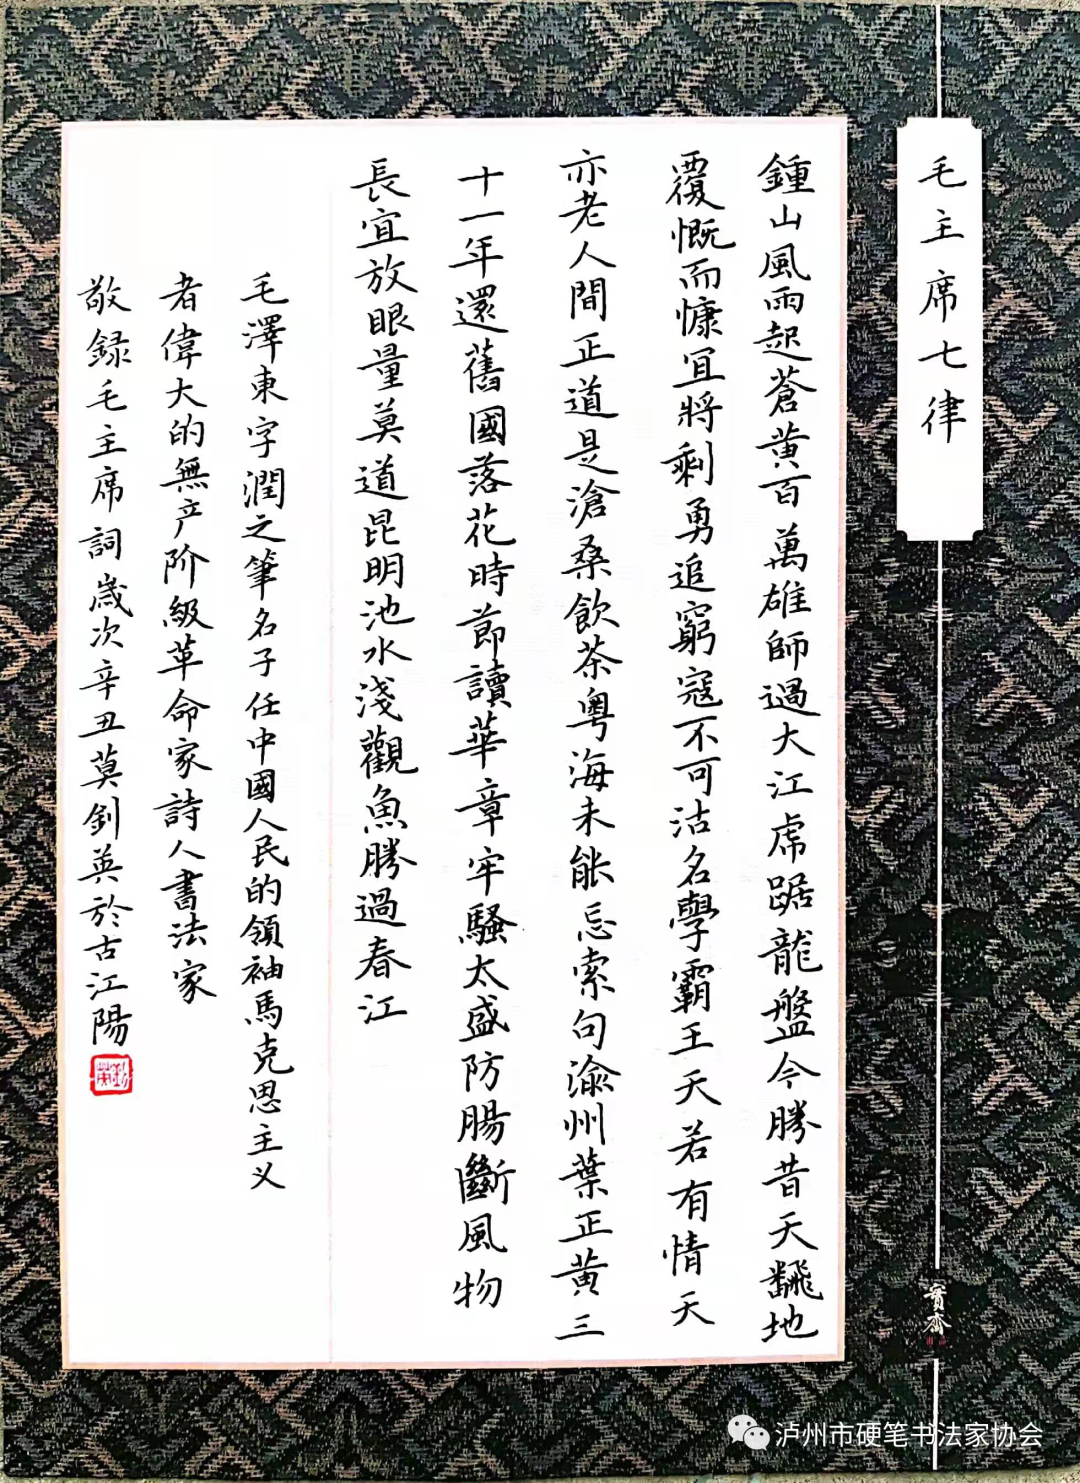 毛主席七律
鍾山風雨起蒼黄百萬雄師過大江虎踞龍盤今勝昔天翻地
覆慨而慷宜將剩勇追窮寇不可沽名學霸王天若有情天
亦老人間正道是滄桑飲茶粤海未能忘索句渝州葉正黄三
十一年還舊國落花時節讀華章牢騷太盛防腸斷風物
長宜放眼量莫道昆明池水淺觀魚勝過春江
毛澤東字潤之筆名子任中國人民的領袖馬克思主义
者偉大的無产阶級革命家詩人書法家
敬録毛主席詞歲次辛丑莫釗英於古江陽
寳齋
泸州市硬笔书法家协会